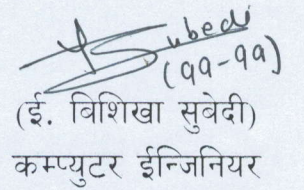 Subedi
(११-११)
(ई. विशिखा सुबेदी)
कम्प्युटर ईन्जिनियर